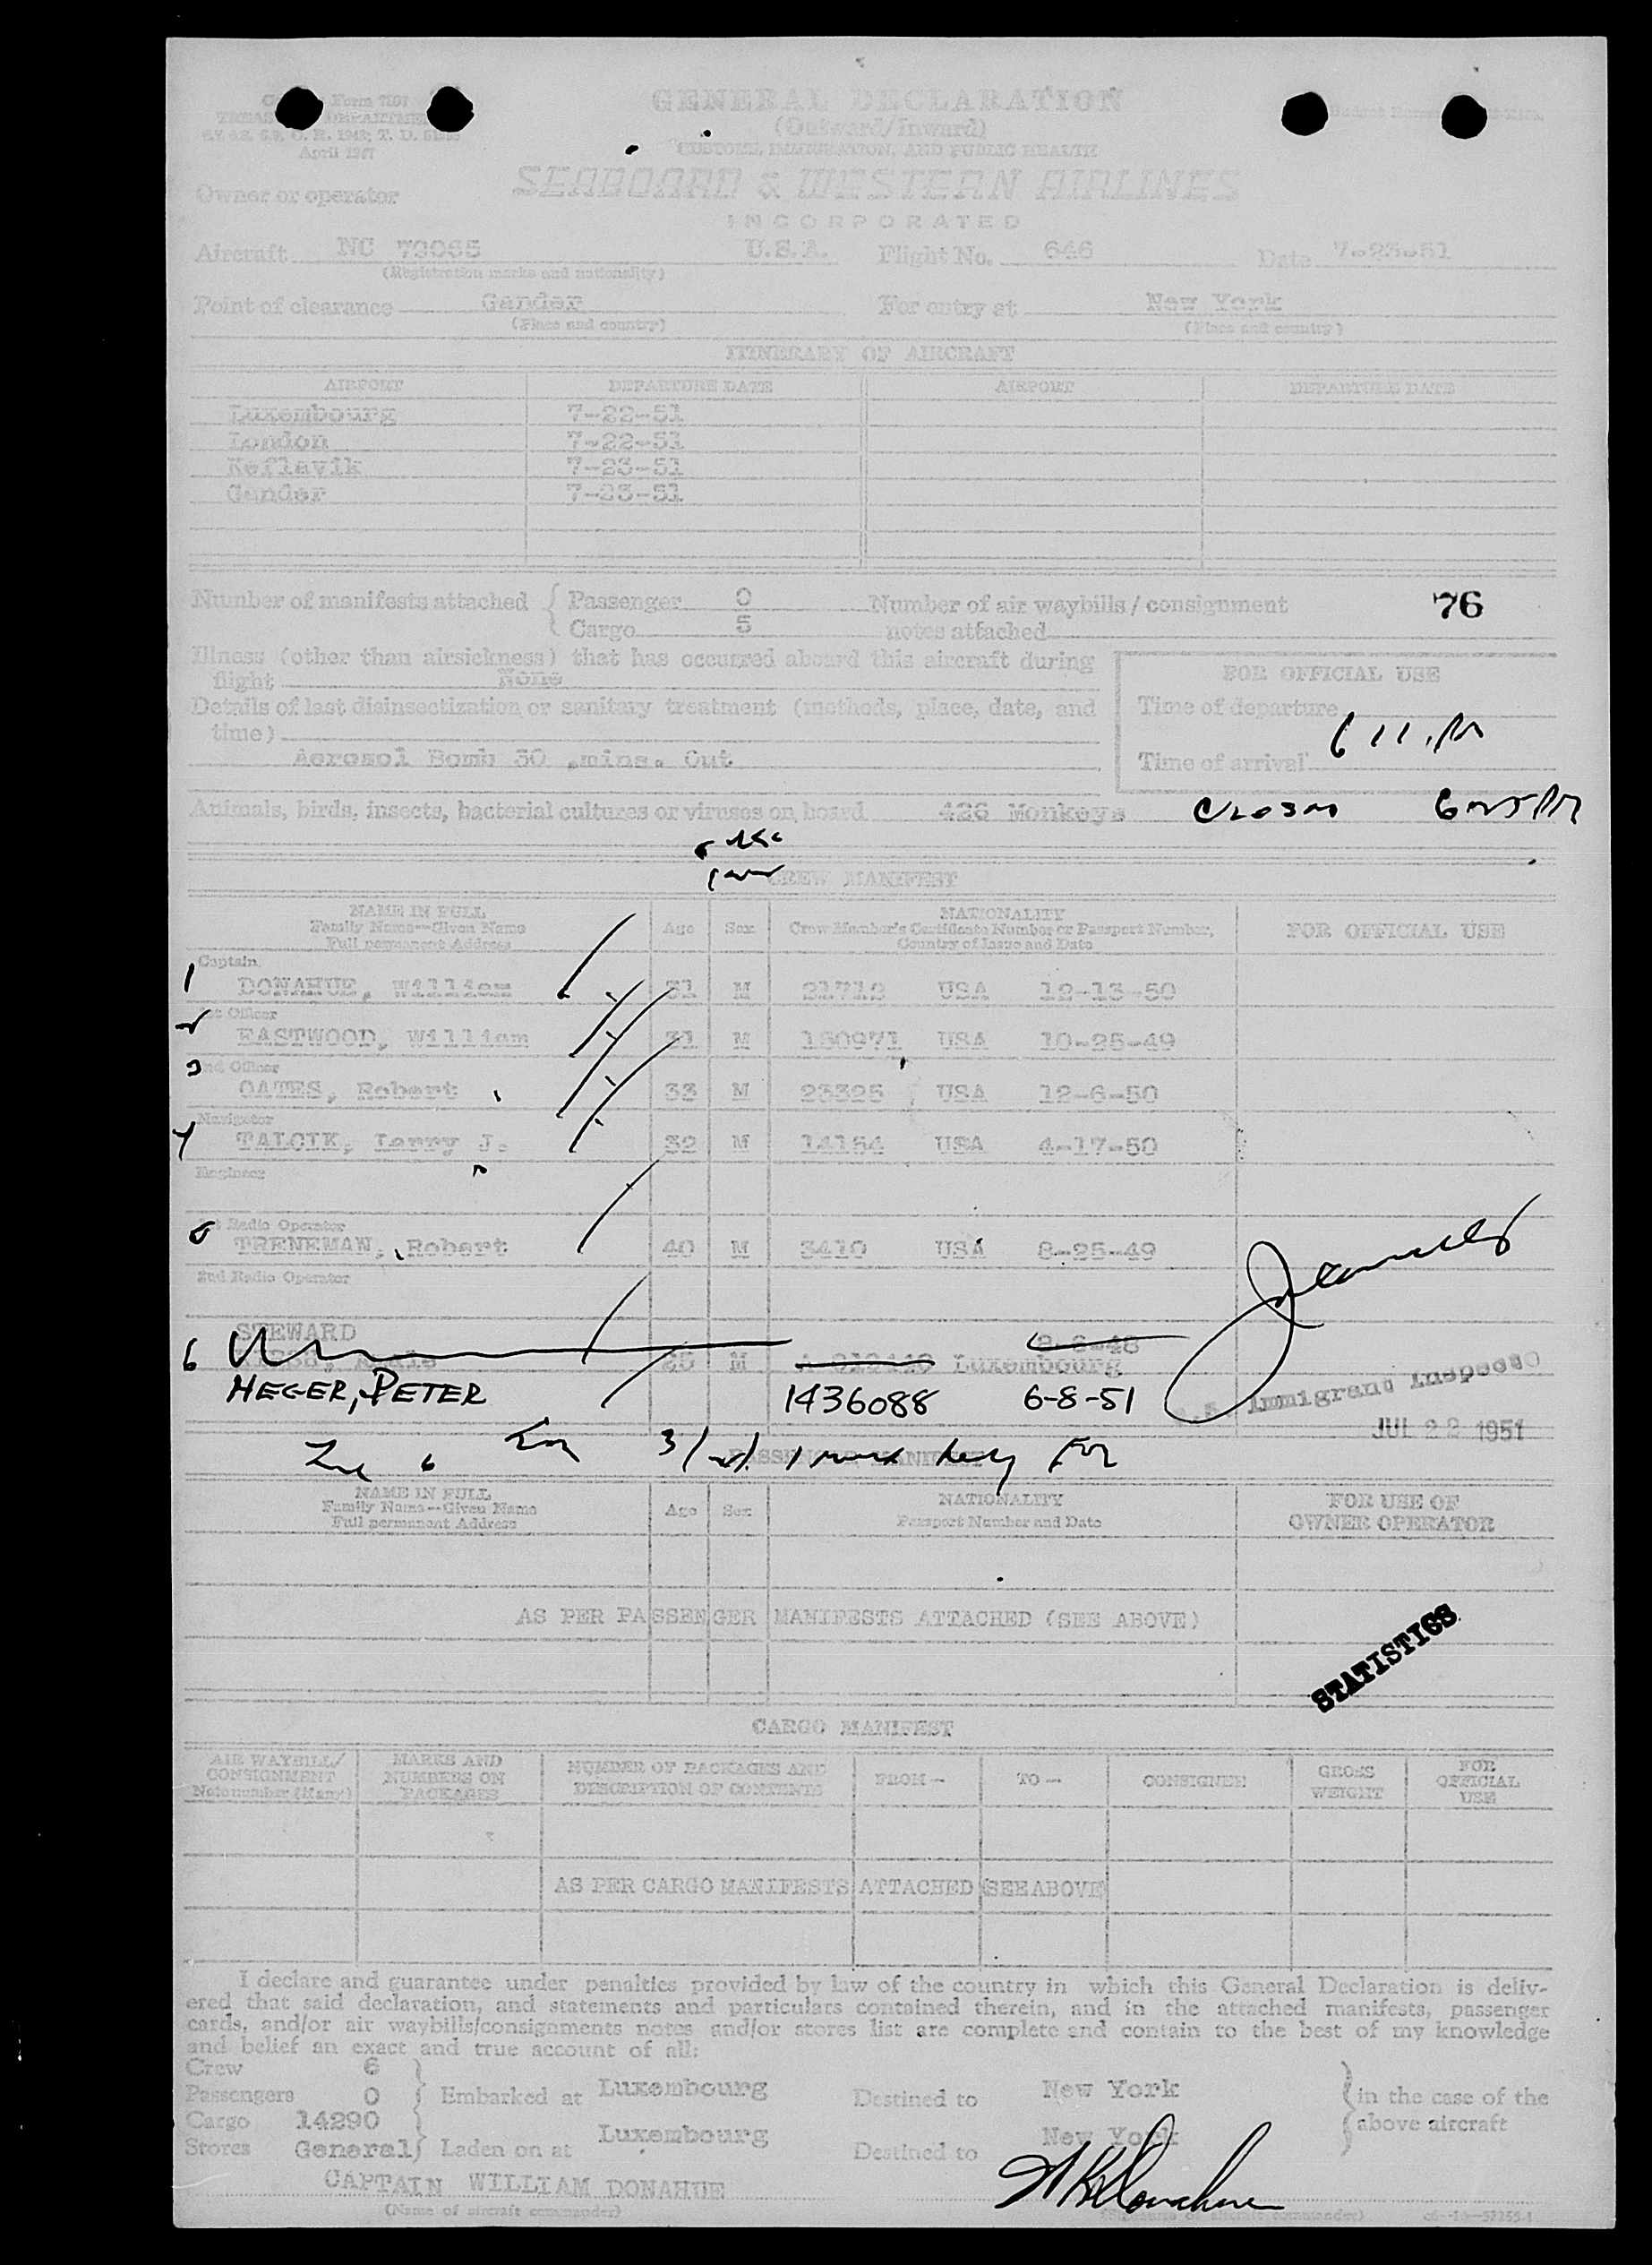 Form 7507
GENERAL DECLARATION
(Outward/Inward)
TREASURY DEPARTMENT
CUSTOMS, IMMIGRATION, AND PUBLIC HEALTH
April 1947
SEABOARD & WESTERN AIRLINES
Owner or operator
INCORPORATED
Aircraft NC 79065 U.S.A. Flight No. 646 Date 7-23-51
(Registration marks and nationality)
Point of clearance Gander For entry at New York
(Place and country) (Place and country)
ITINERARY OF AIRCRAFT
AIRPORT DEPARTURE DATE AIRPORT DEPARTURE DATE
Luxembourg 7-22-51
London 7-22-51
Keflavik 7-23-51
Gander 7-23-51
Number of manifests attached { Passenger 0 Number of air waybills / consignment 76
Cargo 5 notes attached
Illness (other than airsickness) that has occurred aboard this aircraft during
flight None
FOR OFFICIAL USE
Details of last disinsectization or sanitary treatment (methods, place, date, and
time)
Time of departure
Aerosol Bomb 30 .mins. Out
Time of arrival 611 PM
Animals, birds, insects, bacterial cultures or viruses on board 426 Monkeys
CREW MANIFEST
NAME IN FULL
Family Name—Given Name
Full permanent Address
Age Sex
NATIONALITY
Crew Member's Certificate Number or Passport Number,
Country of Issue and Date
FOR OFFICIAL USE
Captain
1 DONAHUE, William 31 M 21712 USA 12-13-50
1st Officer
2 EASTWOOD, William 31 M 150971 USA 10-25-49
2nd Officer
3 OATES, Robert 33 M 23325 USA 12-6-50
Navigator
4 TALCIK, Larry J. 32 M 14154 USA 4-17-50
Engineer
1st Radio Operator
5 TRENEMAN, Robert 40 M 3410 USA 8-25-49
2nd Radio Operator
STEWARD
6 M Luxembourg
HEGER, PETER 1436088 6-8-51
U.S. Immigrant Inspector
JUL 22 1951
PASSENGER MANIFEST
NAME IN FULL
Family Name—Given Name
Full permanent Address
Age Sex
NATIONALITY
Passport Number and Date
FOR USE OF
OWNER OPERATOR
AS PER PASSENGER MANIFESTS ATTACHED (SEE ABOVE)
STATISTICS
CARGO MANIFEST
AIR WAYBILL/
CONSIGNMENT
Note number (if any)
MARKS AND
NUMBERS ON
PACKAGES
NUMBER OF PACKAGES AND
DESCRIPTION OF CONTENTS
FROM— TO— CONSIGNEE
GROSS
WEIGHT
FOR
OFFICIAL
USE
AS PER CARGO MANIFESTS ATTACHED (SEE ABOVE)
I declare and guarantee under penalties provided by law of the country in which this General Declaration is deliv-
ered that said declaration, and statements and particulars contained therein, and in the attached manifests, passenger
cards, and/or air waybills/consignments notes and/or stores list are complete and contain to the best of my knowledge
and belief an exact and true account of all:
Crew 6
Passengers 0 Embarked at Luxembourg Destined to New York in the case of the
Cargo 14290 above aircraft
Stores General Laden on at Luxembourg Destined to New York
CAPTAIN WILLIAM DONAHUE
(Name of aircraft commander) (Signature of aircraft commander)